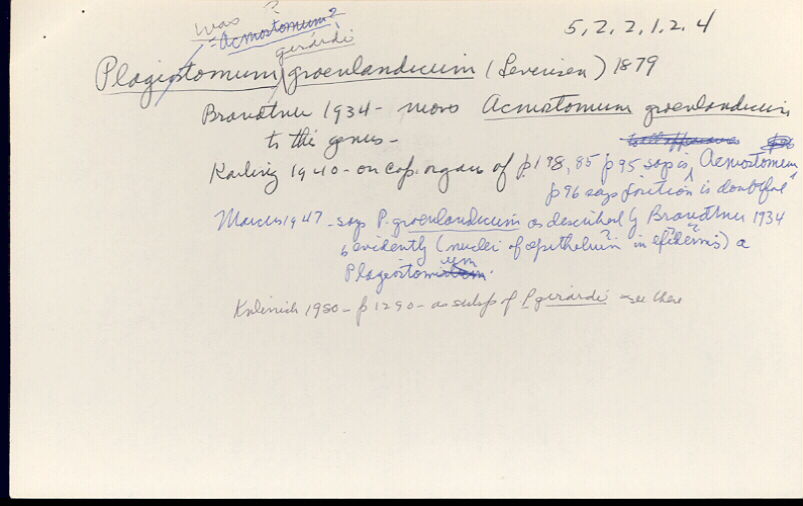 was ?
= Acmostomum?
girardi
5, 2. 2. 1. 2. 4
Plagiostomum groenlandicum (Levinsen) 1879
Brandtner 1934 - moves Acmostomum groenlandicum
to this genus -
Karling 1940 - on cop. organs of p198, 85 p95 says is Acmostomum
p96 says position is doubtful
Marcus 1947 - says P. groenlandicum as described by Brandtner 1934
is evidently (nuclei of epithelium? in epidermis?) a
Plagiostomum.
1950 - p1290 - as subsp of P. girardi see there